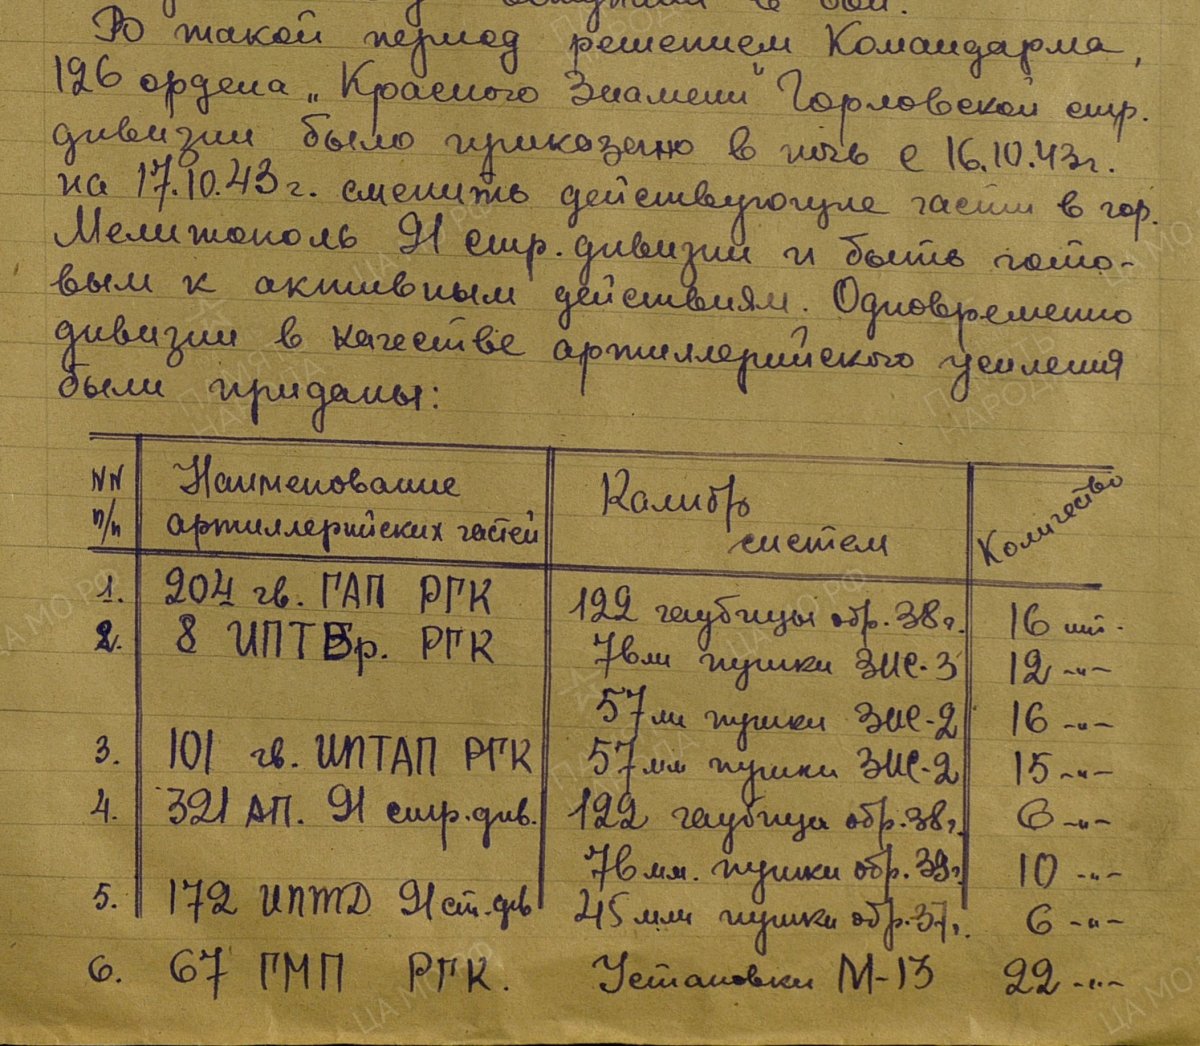 в бой.
В такой период решением Командарма,
126 ордена „Красного Знамени" Горловской стр.
дивизии было приказано в ночь с 16.10.43г.
на 17.10.43г. сменить действующие части в гор.
Мелитополь 91 стр. дивизии и быть гото-
вым к активным действиям. Одновременно
дивизии в качестве артиллерийского усиления
были приданы:
NN п/п | Наименование артиллерийских частей | Калибр систем | Количество
1. 204 гв. ГАП РГК 122 гаубицы обр. 38г. 16 шт.
2. 8 ИПТБр. РГК 76мм пушки ЗИС-3 12 -"-
57мм пушки ЗИС-2 16 -"-
3. 101 гв. ИПТАП РГК 57мм пушки ЗИС-2 15 -"-
4. 321 АП. 91 стр. див. 122 гаубицы обр. 38г. 6 -"-
76мм. пушки обр. 39г. 10 -"-
5. 172 ИПТД 91 ст. див 45мм пушки обр. 37г. 6 -"-
6. 67 ГМП РГК. Установки М-13 22 -"-
ПАМЯТЬ НАРОДА
ЦА МО РФ